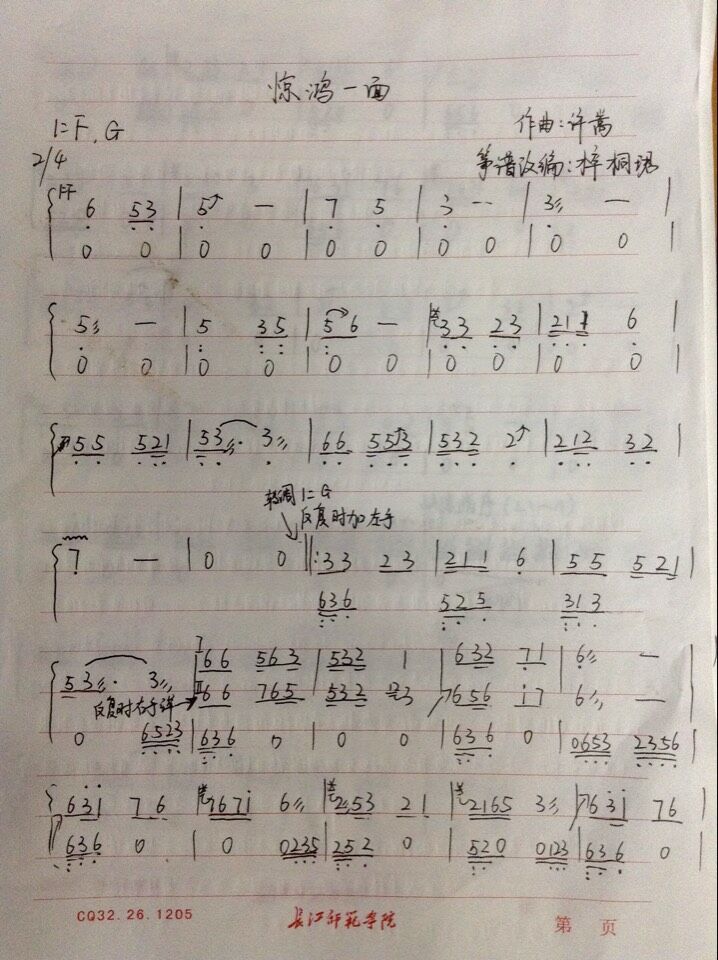 惊鸿一面
1=F, G
作曲:许嵩
2/4
筝谱改编:梓桐珺
6 53 | 5 — | 7 5 | 3 -- | 3 — |
0 0 | 0 0 | 0 0 | 0 0 | 0 0
5 — | 5 35 | 56 — | 33 23 | 211 6 |
0 0 | 0 0 | 0 0 | 0 0 | 0 0
55 521 | 53· 3 | 66 553 | 532 2 | 212 32 |
转调 1=G
反复时加左手
7 — | 0 0 ‖: 33 23 | 211 6 | 55 521 |
636 525 313
53· 3 | I 66 563 | 532 1 | 632 71 | 6 — |
反复时右手弹 II 66 765 | 532 3 | 7656 i7 6 —
0 6523 | 636 0 | 0 0 | 636 0 | 0653 2356
63i 76 | 167i 6 | 253 21 | 2165 3 | 763i 76
636 0 | 0 0235 | 252 0 | 520 0123 | 636 0
CQ32.26.1205
长江师范学院
第 页